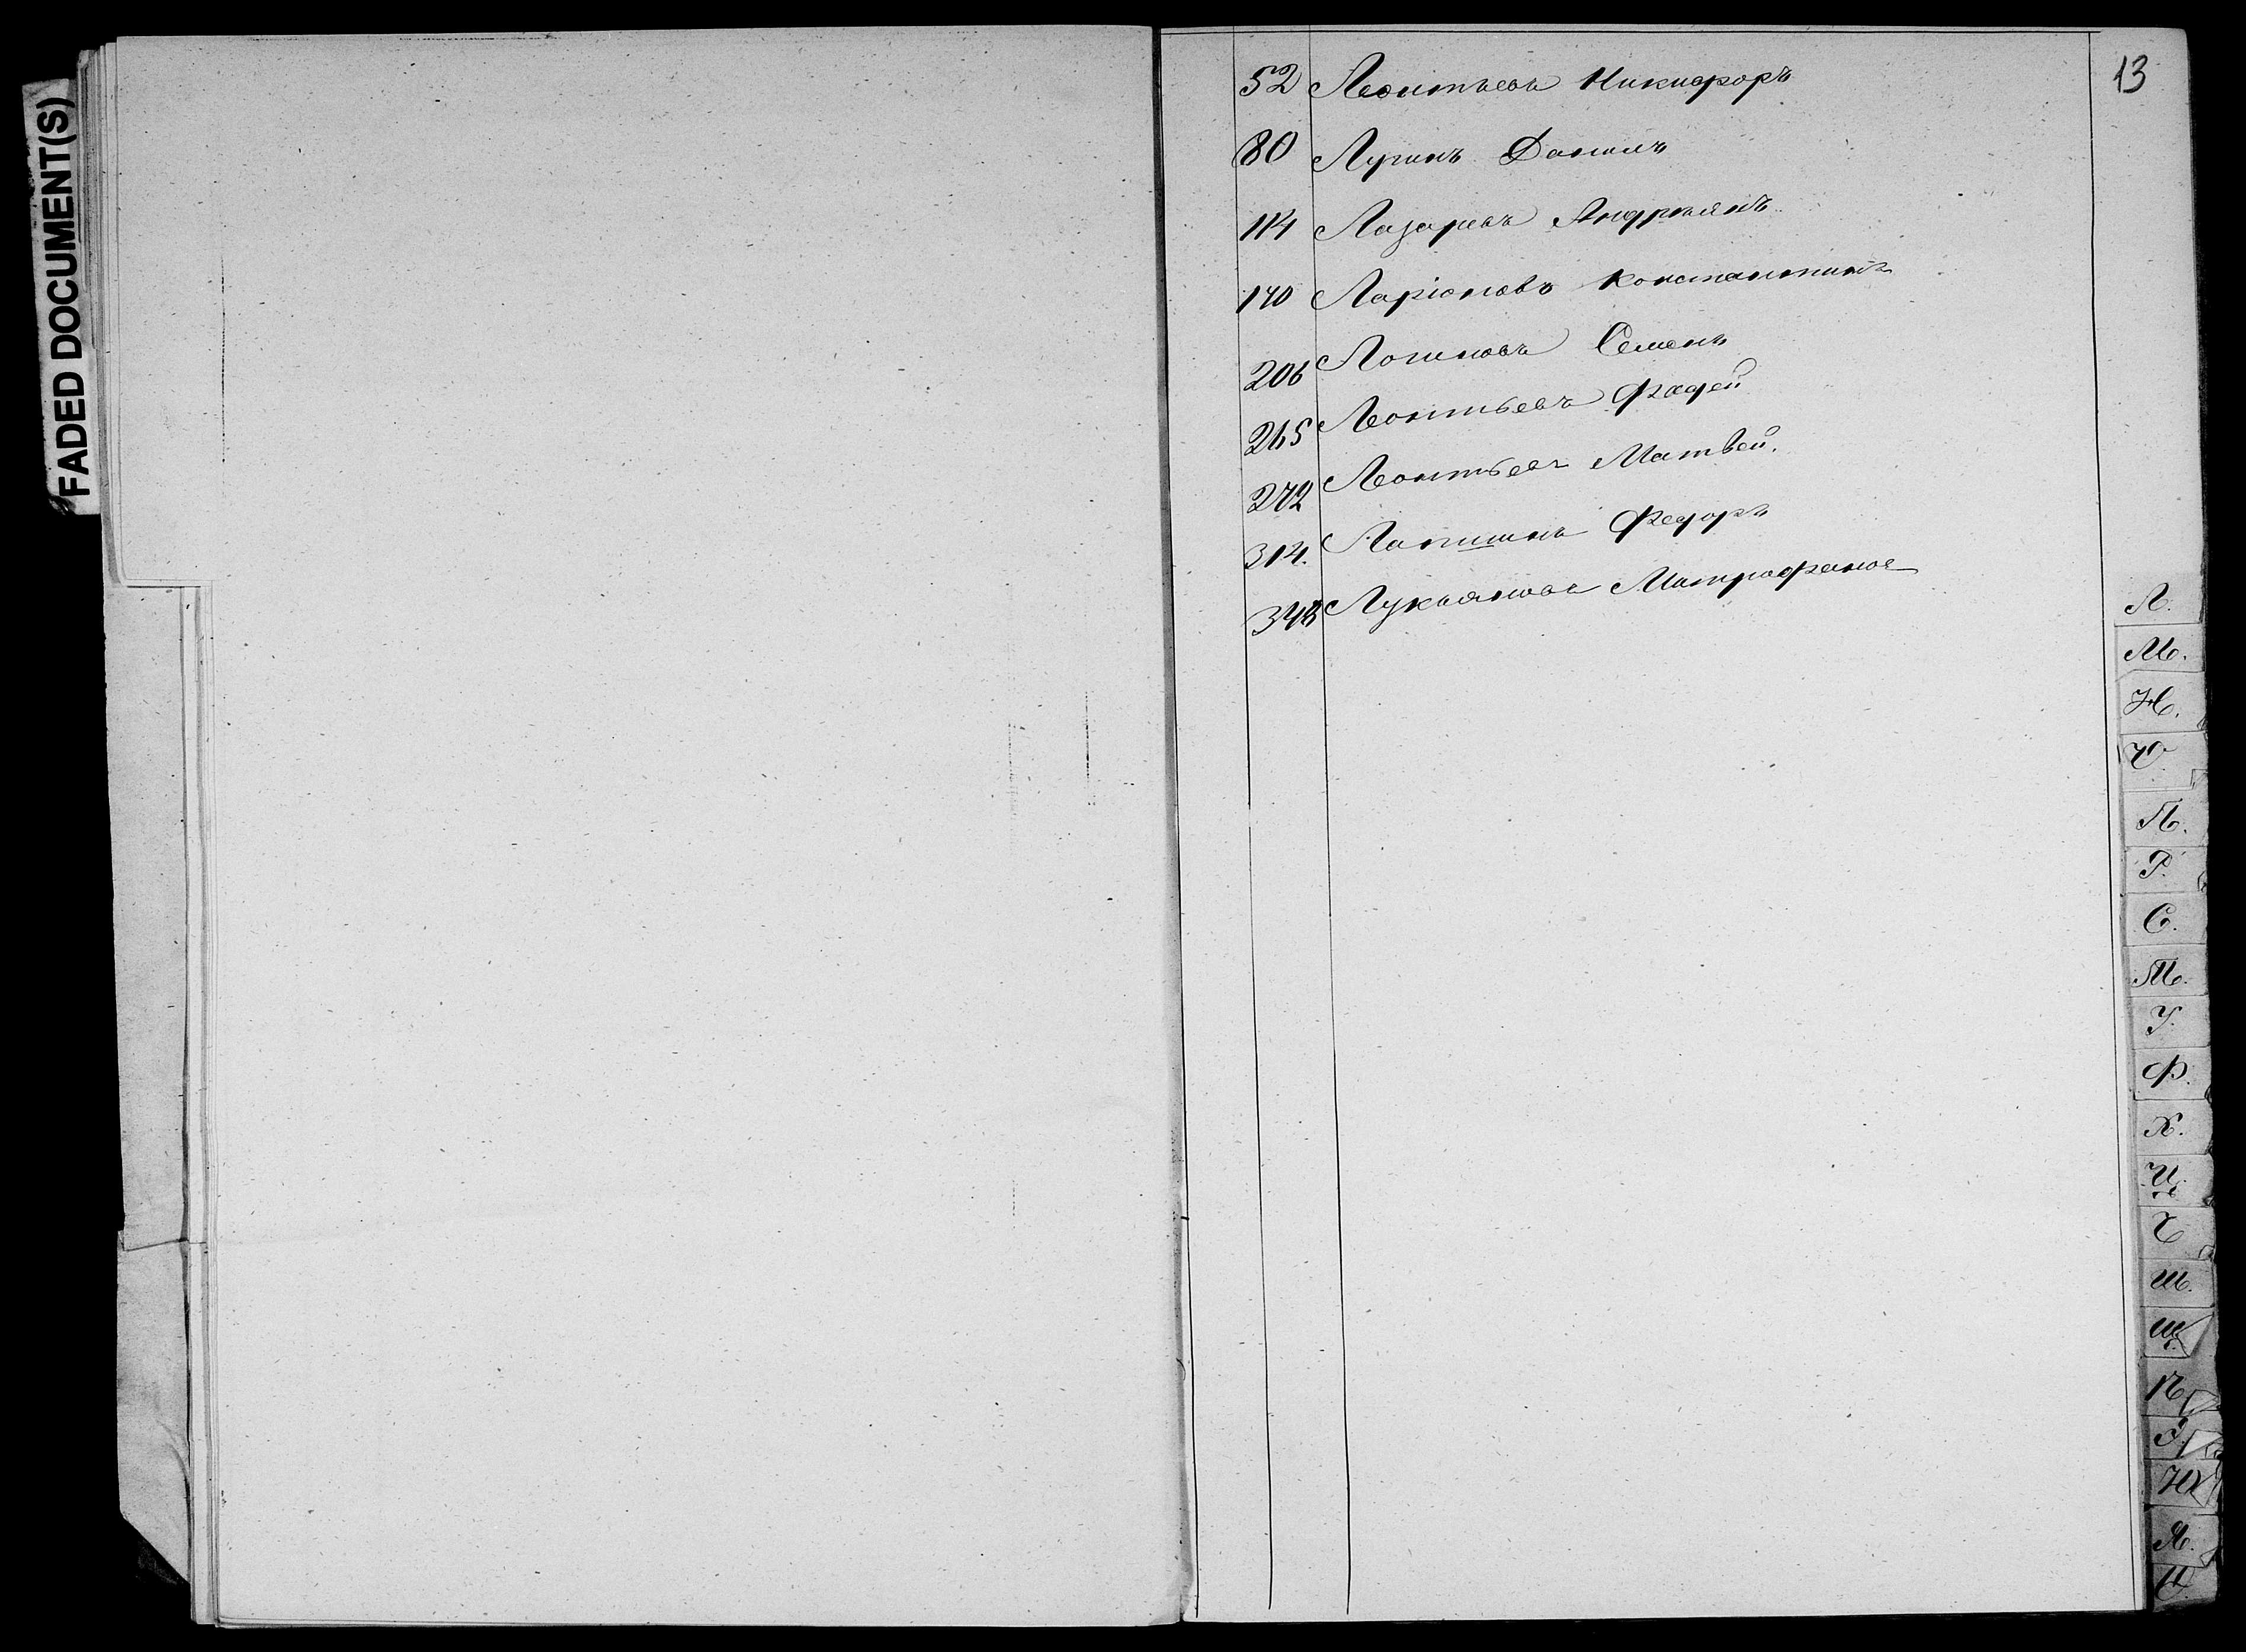 FADED DOCUMENT(S)
13
52 Леонтьевъ Никифоръ
80 Лугинъ Данилъ
114 Лазаревъ Андрьянъ
140 Ларіоновъ Константинъ
206 Логиновъ Семенъ
265 Леонтьевъ Фадей
272 Леонтьевъ Матвей.
314. Лапшинъ Федоръ
348 Лукьяновъ Митрофанъ
Л.
М.
Н.
О
П.
Р.
С.
Т.
У.
Ф.
Х.
Ц.
Ч
Ш.
Щ.
Ю
Я.